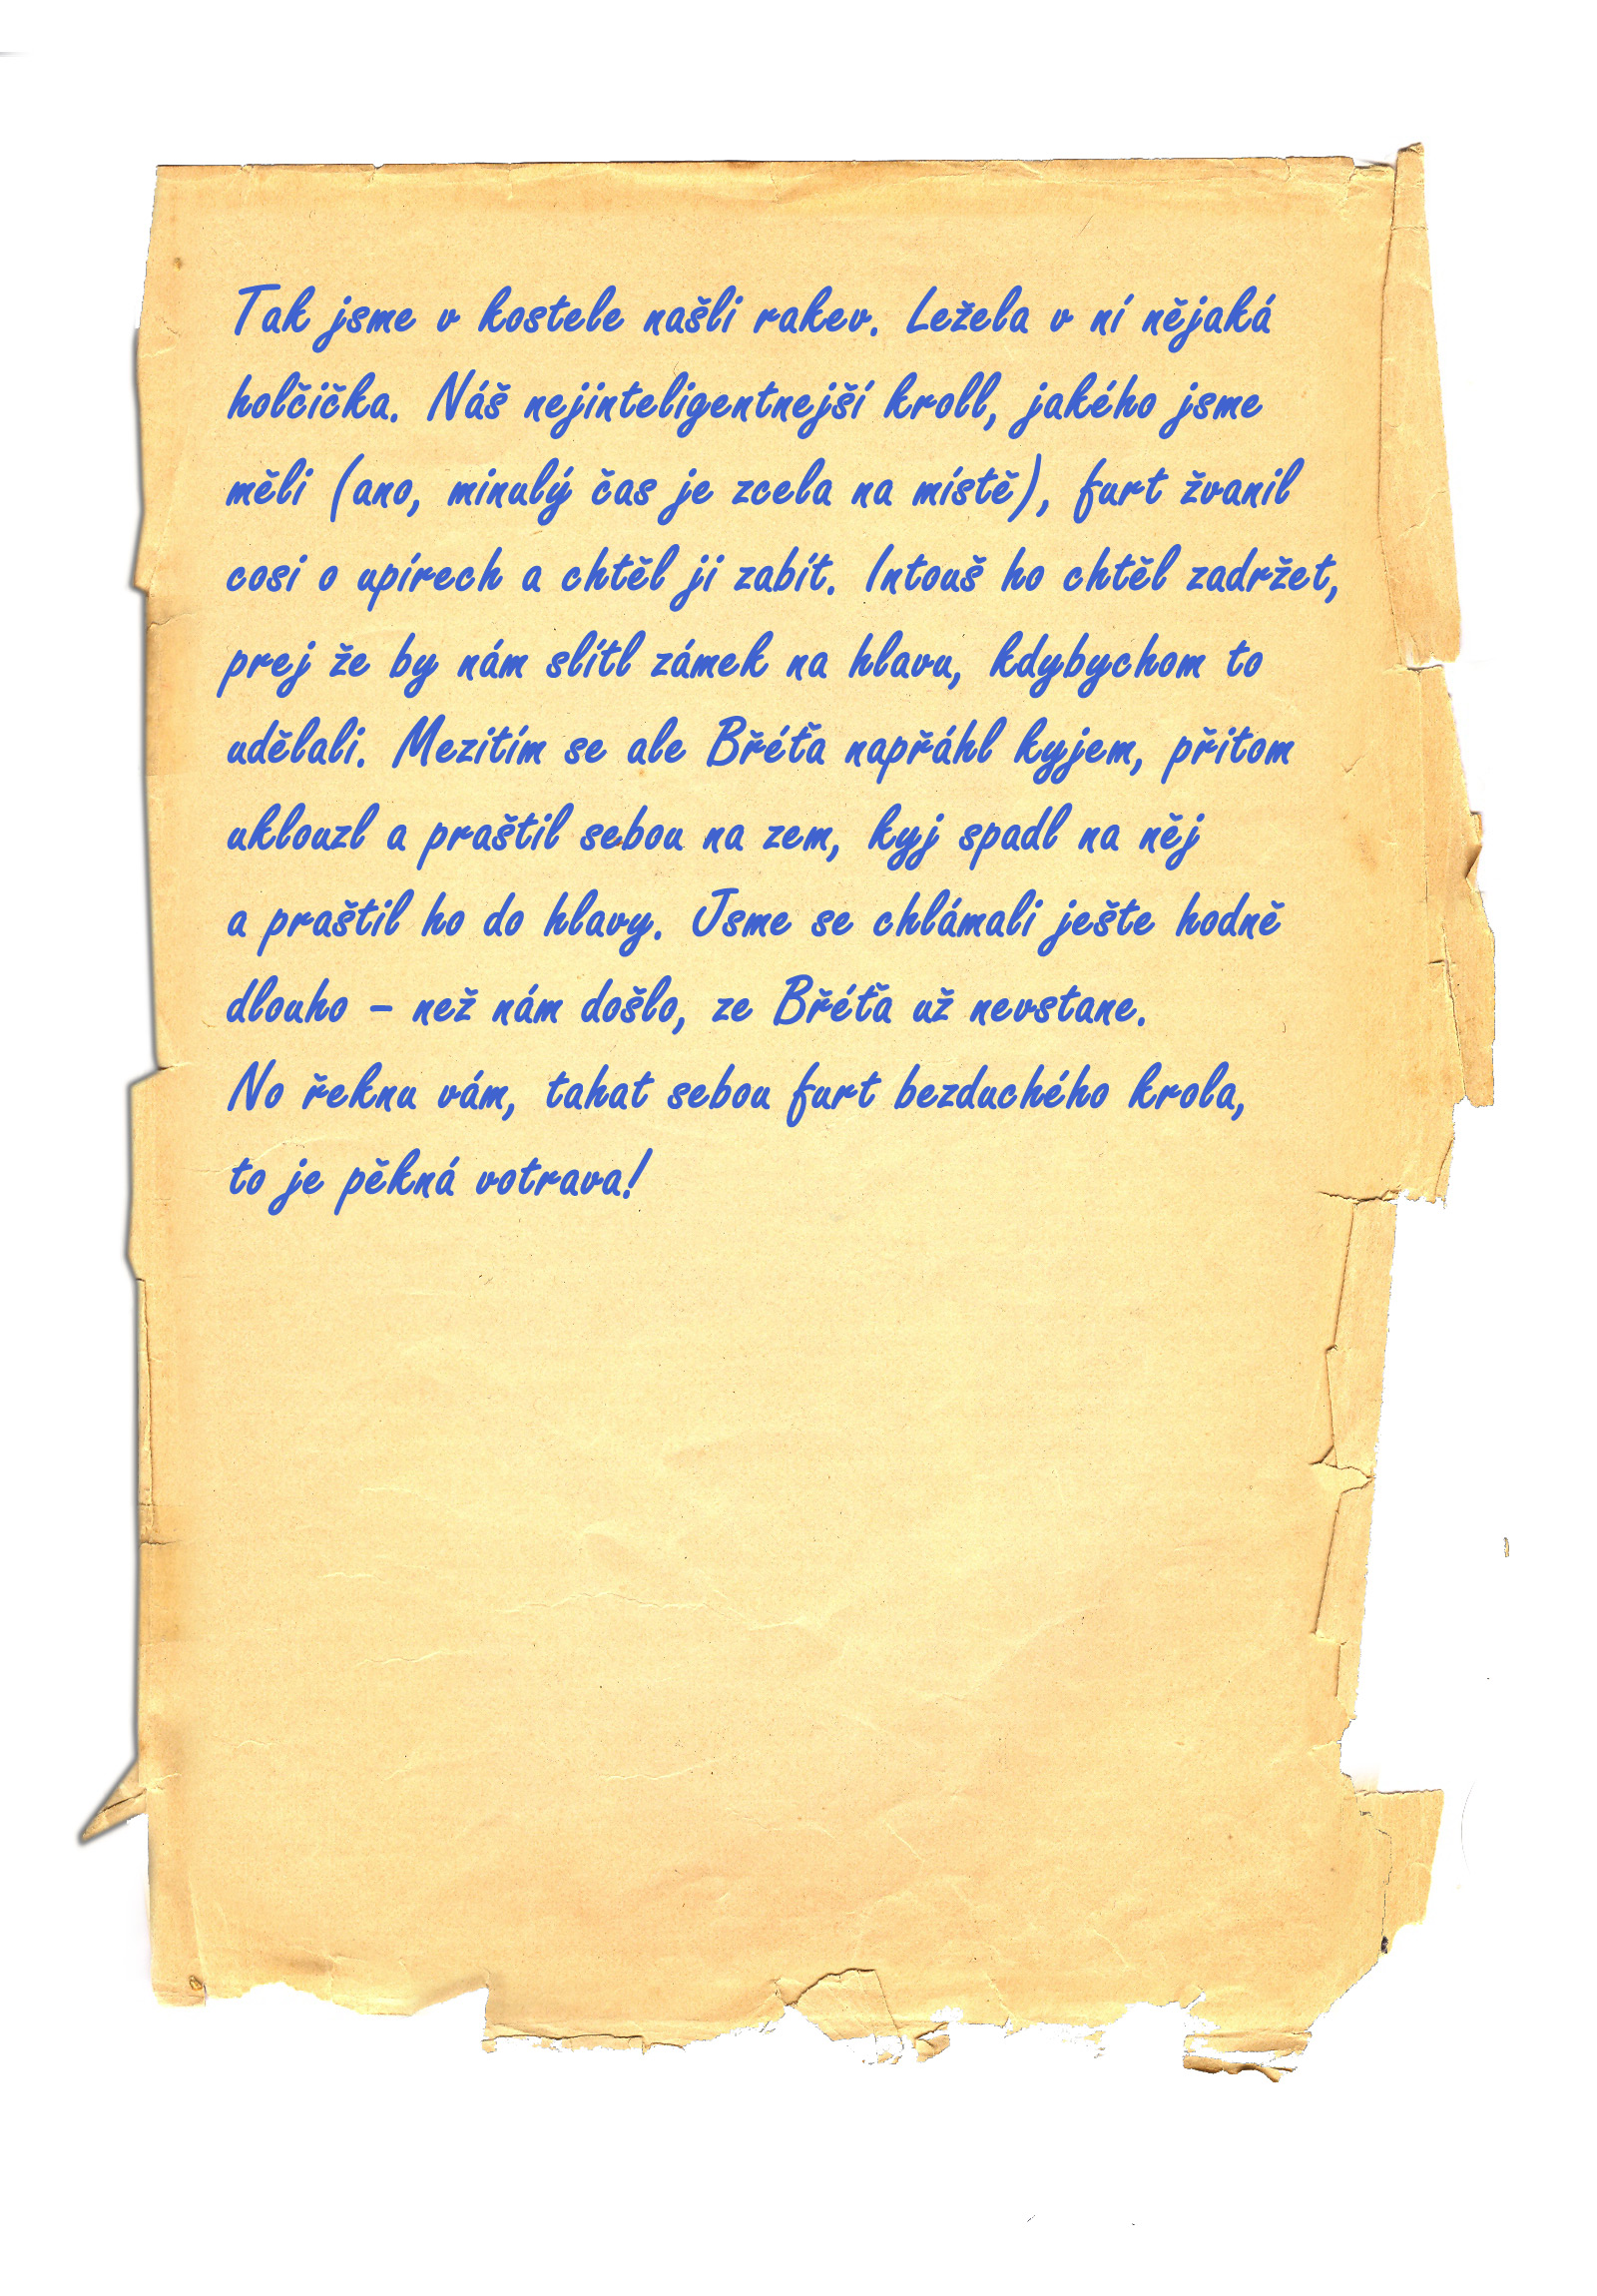 Tak jsme v kostele našli rakev. Ležela v ní nějaká
holčička. Náš nejinteligentnejší kroll, jakého jsme
měli (ano, minulý čas je zcela na místě), furt žvanil
cosi o upírech a chtěl ji zabít. Intouš ho chtěl zadržet,
prej že by nám slítl zámek na hlavu, kdybychom to
udělali. Mezitím se ale Břéťa napřáhl kyjem, přitom
uklouzl a praštil sebou na zem, kyj spadl na něj
a praštil ho do hlavy. Jsme se chlámali ješte hodně
dlouho – než nám došlo, ze Břéťa už nevstane.
No řeknu vám, tahat sebou furt bezduchého krola,
to je pěkná votrava!